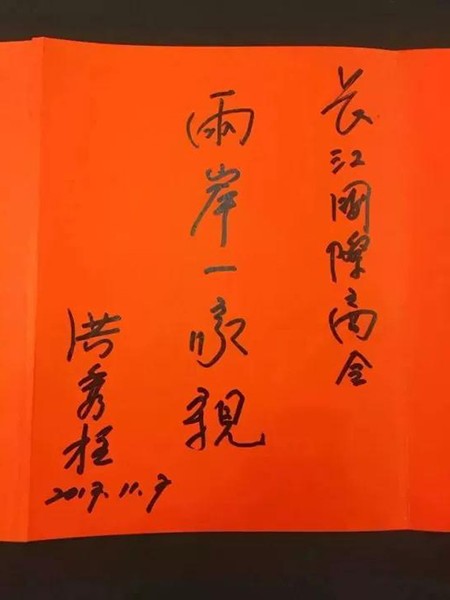 长江國際商会
兩岸一家親
洪秀柱
2017.11.7